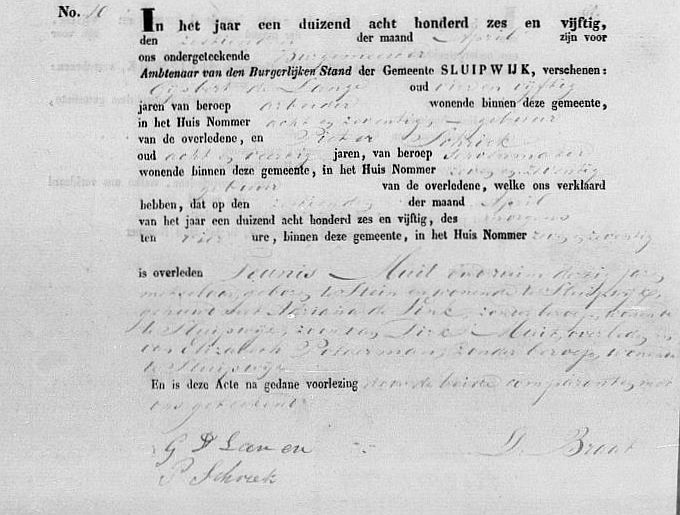 No. 10
In het jaar een duizend acht honderd zes en vijftig,
den der maand April zijn voor
ons ondergeteekende Burgemeester
Ambtenaar van den Burgerlijken Stand der Gemeente SLUIPWIJK, verschenen:
Gijsbert de Lange oud vier en vijftig
jaren van beroep arbeider wonende binnen deze gemeente,
in het Huis Nommer acht en zeventig gebuur
van de overledene, en Pieter Schriek
oud acht en veertig jaren, van beroep Schoenmaker
wonende binnen deze gemeente, in het Huis Nommer zeven en zeventig
gebuur van de overledene, welke ons verklaard
hebben, dat op den zestienden der maand April
van het jaar een duizend acht honderd zes en vijftig, des morgens
ten vier ure, binnen deze gemeente, in het Huis Nommer zeven en zeventig
is overleden Teunis Muit oud ruim dertig jaren
metselaar, geboren te Stein en wonende te Sluipwijk,
gehuwd met Adriana de Vink, zonder beroep, wonende
te Sluipwijk, zoon van Dirk Muit, overleden en
van Elizabeth Polderman, zonder beroep, wonende
te Sluipwijk
En is deze Acte na gedane voorlezing door de beide comparanten met
ons geteekend
G D Lan en D. Braat
P Schriek